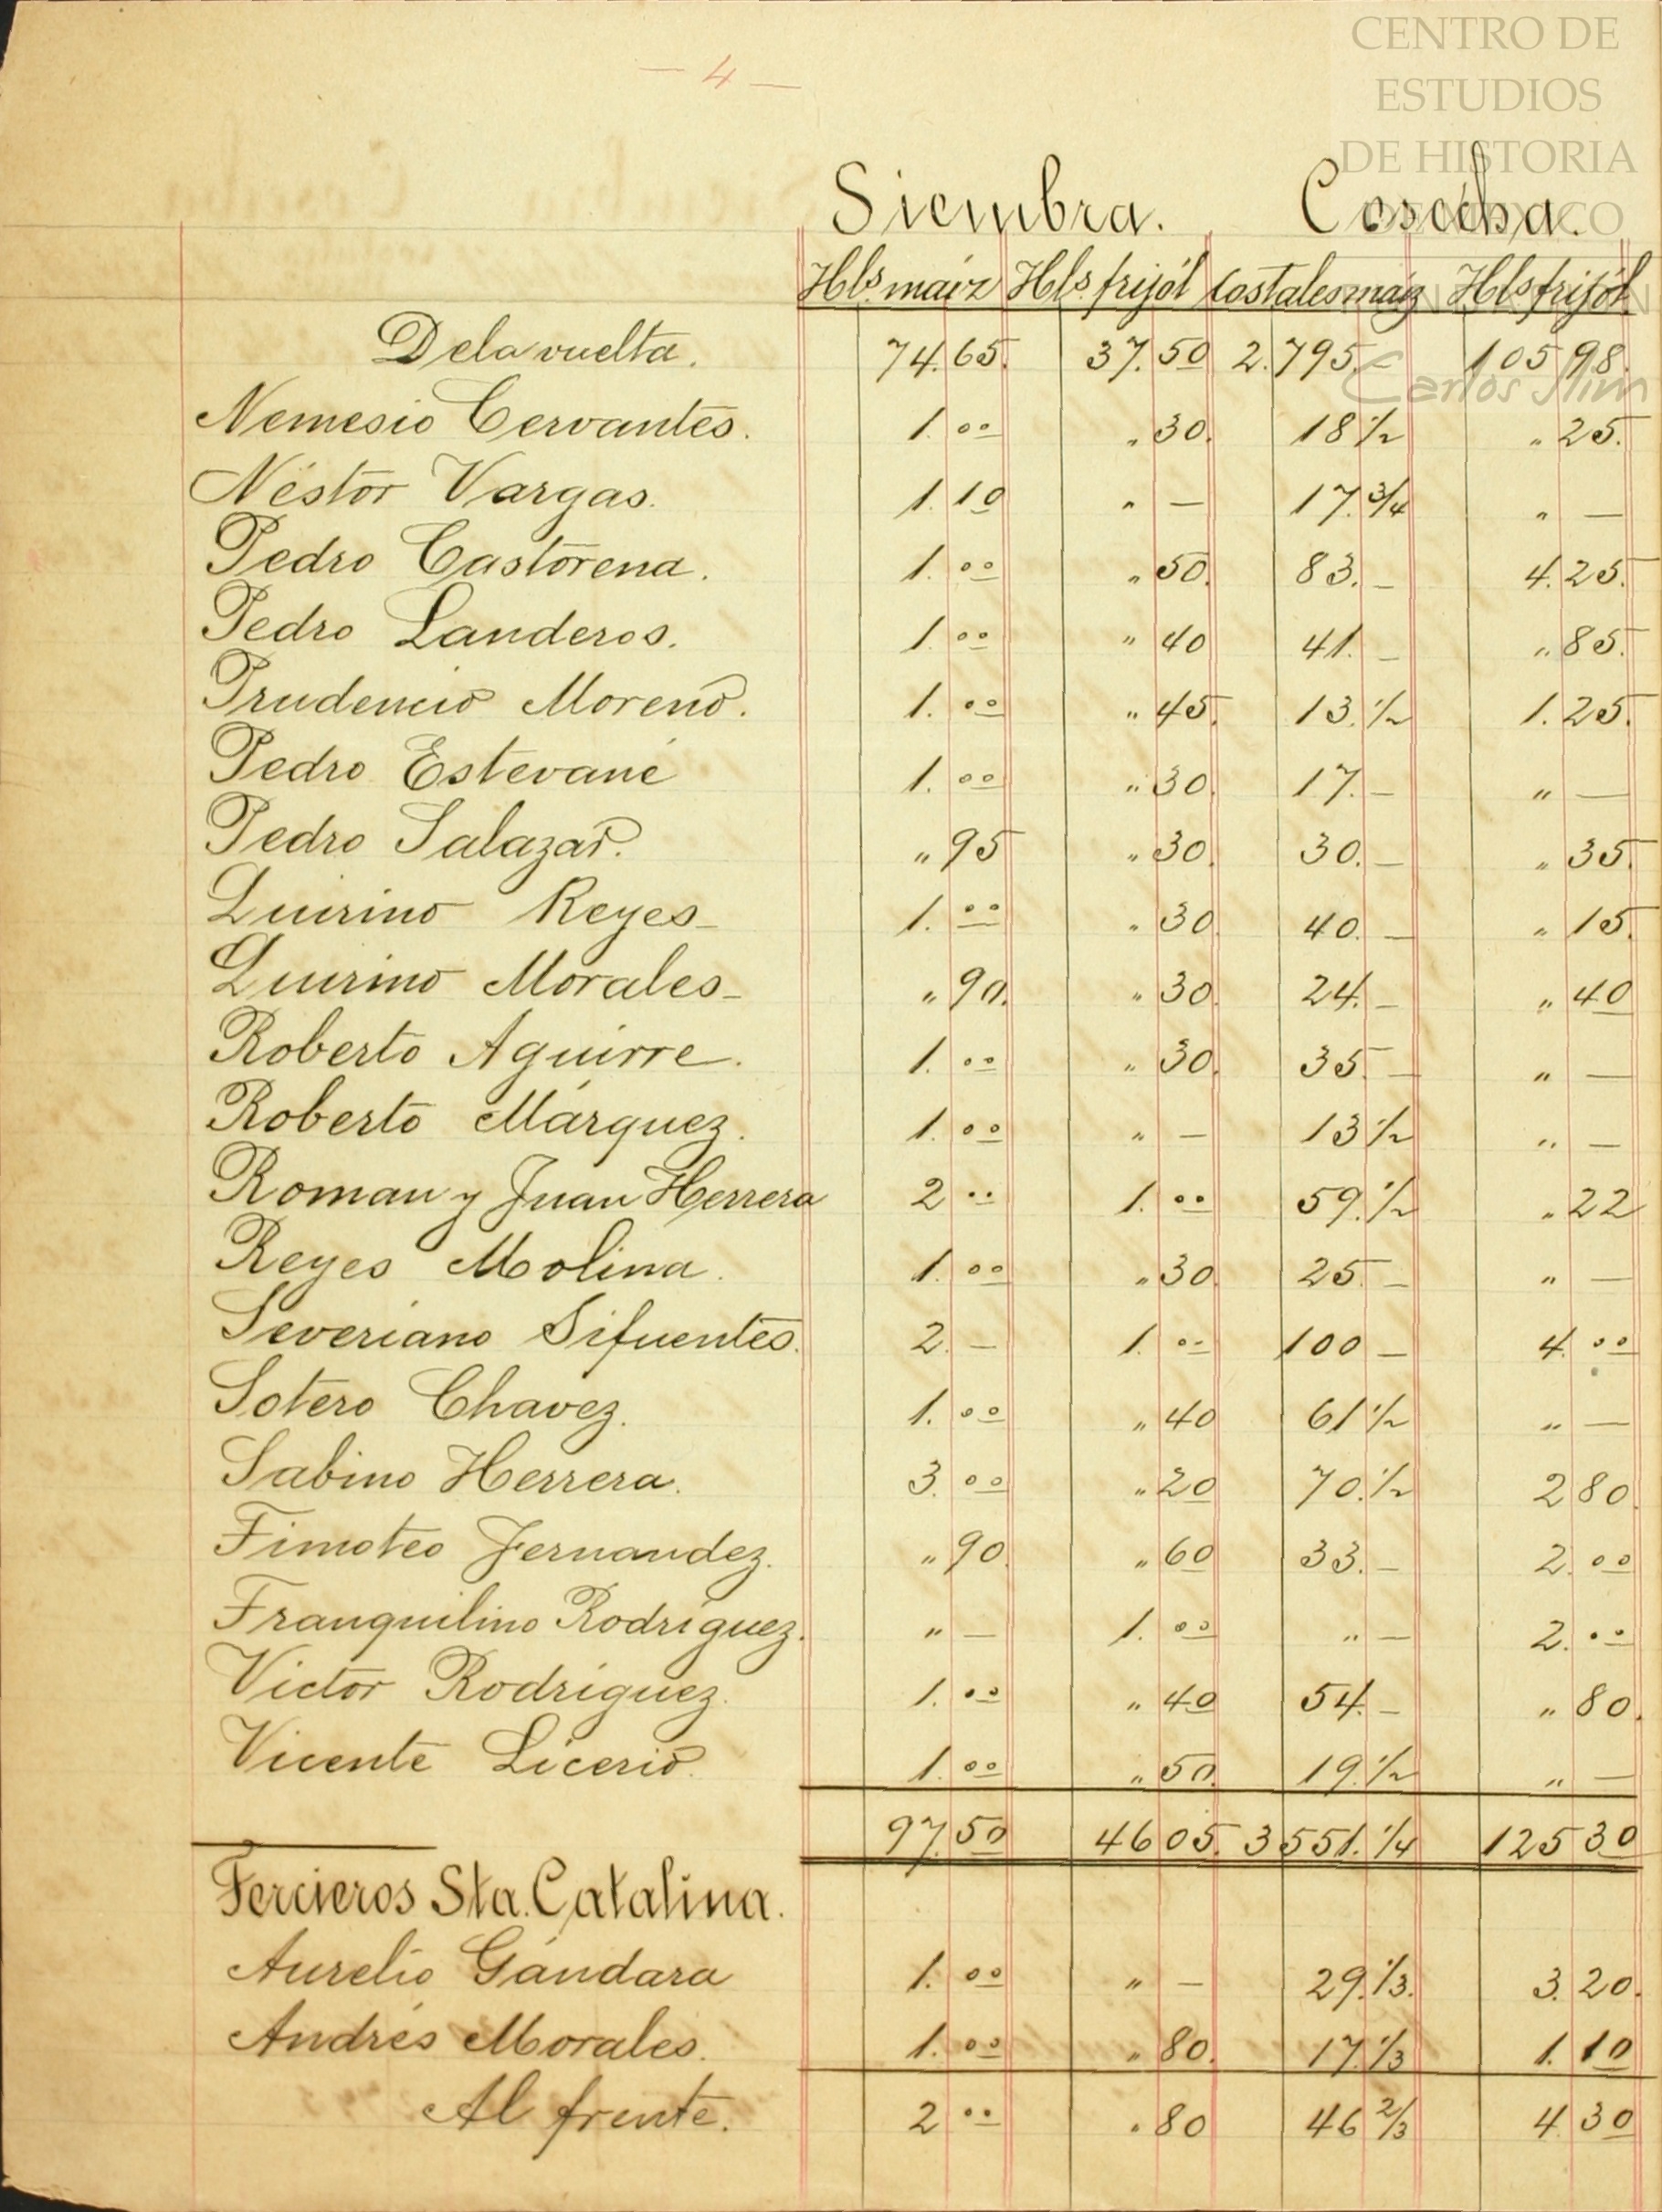 CENTRO DE
ESTUDIOS
DE HISTORIA
— 4 —
Siembra. Cosecha.
Hls. maiz Hls. frijól Costales maiz Hls frijól
De la vuelta. 74.65. 37.50 2.795.– 105 98.
Carlos Slim
Nemesio Cervantes. 1.00 " 30. 18 1/2 " 25.
Néstor Vargas. 1.10 " — 17.3/4 " —
Pedro Castorena. 1.00 " 50. 83. – 4.25.
Pedro Landeros. 1.00 " 40 41. – " 85.
Prudencio Moreno. 1.00 " 45. 13.1/2 1.25.
Pedro Estevané 1.00 " 30. 17. – " —
Pedro Salazar. " 95 " 30. 30. – " 35.
Quirino Reyes – 1.00 " 30 40. – " 15.
Quirino Morales – " 90. " 30. 24. – " 40
Roberto Aguirre. 1.00 " 30. 35. – " —
Roberto Márquez. 1.00 " – 13 1/2 " —
Roman y Juan Herrera 2 00 1.00 59.1/2 " 22
Reyes Molina. 1.00 " 30. 25. – " —
Severiano Sifuentes. 2. – 1.00 100 – 4.00
Sotero Chavez. 1.00 " 40 61 1/2 " —
Sabino Herrera. 3.00 " 20 70.1/2 2 80.
Timoteo Fernandez. " 90. " 60 33. – 2.00
Tranquilino Rodriguez. " — 1.00 " – 2.00
Victor Rodriguez. 1.00 " 40 54. – " 80.
Vicente Licerio. 1.00 " 50. 19.1/2 " —
97.50 46 05. 3 551.1/4 125 30
Tercieros Sta. Catalina.
Aurelio Gándara 1.00 " – 29.1/3. 3.20.
Andrés Morales. 1.00 " 80. 17.1/3 1.10
Al frente. 2 00 " 80 46 2/3 4 30